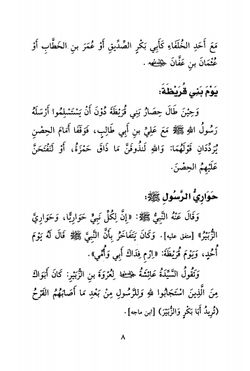 مَعَ أَحَدِ الْخُلَفَاءِ كَأَبِي بَكْرٍ الصِّدِّيقِ أَوْ عُمَرَ بنِ الْخَطَّابِ أَوْ
عُثْمَانَ بنِ عَفَّانَ ﷢.
يَوْمُ بَنِي قُرَيْظَةَ:
وَحِينَ طَالَ حِصَارُ بَنِي قُرَيْظَةَ دُونَ أَنْ يَسْتَسْلِمُوا أَرْسَلَهُ
رَسُولُ اللهِ ﷺ مَعَ عَلِيِّ بنِ أَبِي طَالِبٍ، فَوَقَفَا أَمَامَ الْحِصْنِ
يُرَدِّدَانِ قَوْلَهُمَا: وَاللهِ لَنَذُوقَنَّ مَا ذَاقَ حَمْزَةُ، أَوْ لَنَفْتَحَنَّ
عَلَيْهِمُ الْحِصْنَ.
حَوَارِيُّ الرَّسُولِ ﷺ:
وَقَالَ عَنْهُ النَّبِيُّ ﷺ: «إِنَّ لِكُلِّ نَبِيٍّ حَوَارِيًّا، وَحَوَارِيَّ
الزُّبَيْرُ» [متفق عليه]. وَكَانَ يَتَفَاخَرُ بِأَنَّ النَّبِيَّ ﷺ قَالَ لَهُ يَوْمَ
أُحُدٍ، وَيَوْمَ قُرَيْظَةَ: «اِرْمِ فِدَاكَ أَبِي وَأُمِّي».
وَتَقُولُ السَّيِّدَةُ عَائِشَةُ ﷞ لِعُرْوَةَ بنِ الزُّبَيْرِ: كَانَ أَبَوَاكَ
مِنَ الَّذِينَ اسْتَجَابُوا لِلهِ وَلِلرَّسُولِ مِنْ بَعْدِ مَا أَصَابَهُمُ الْقَرْحُ
(تُرِيدُ أَبَا بَكْرٍ وَالزُّبَيْرَ) [ابن ماجه].
٨